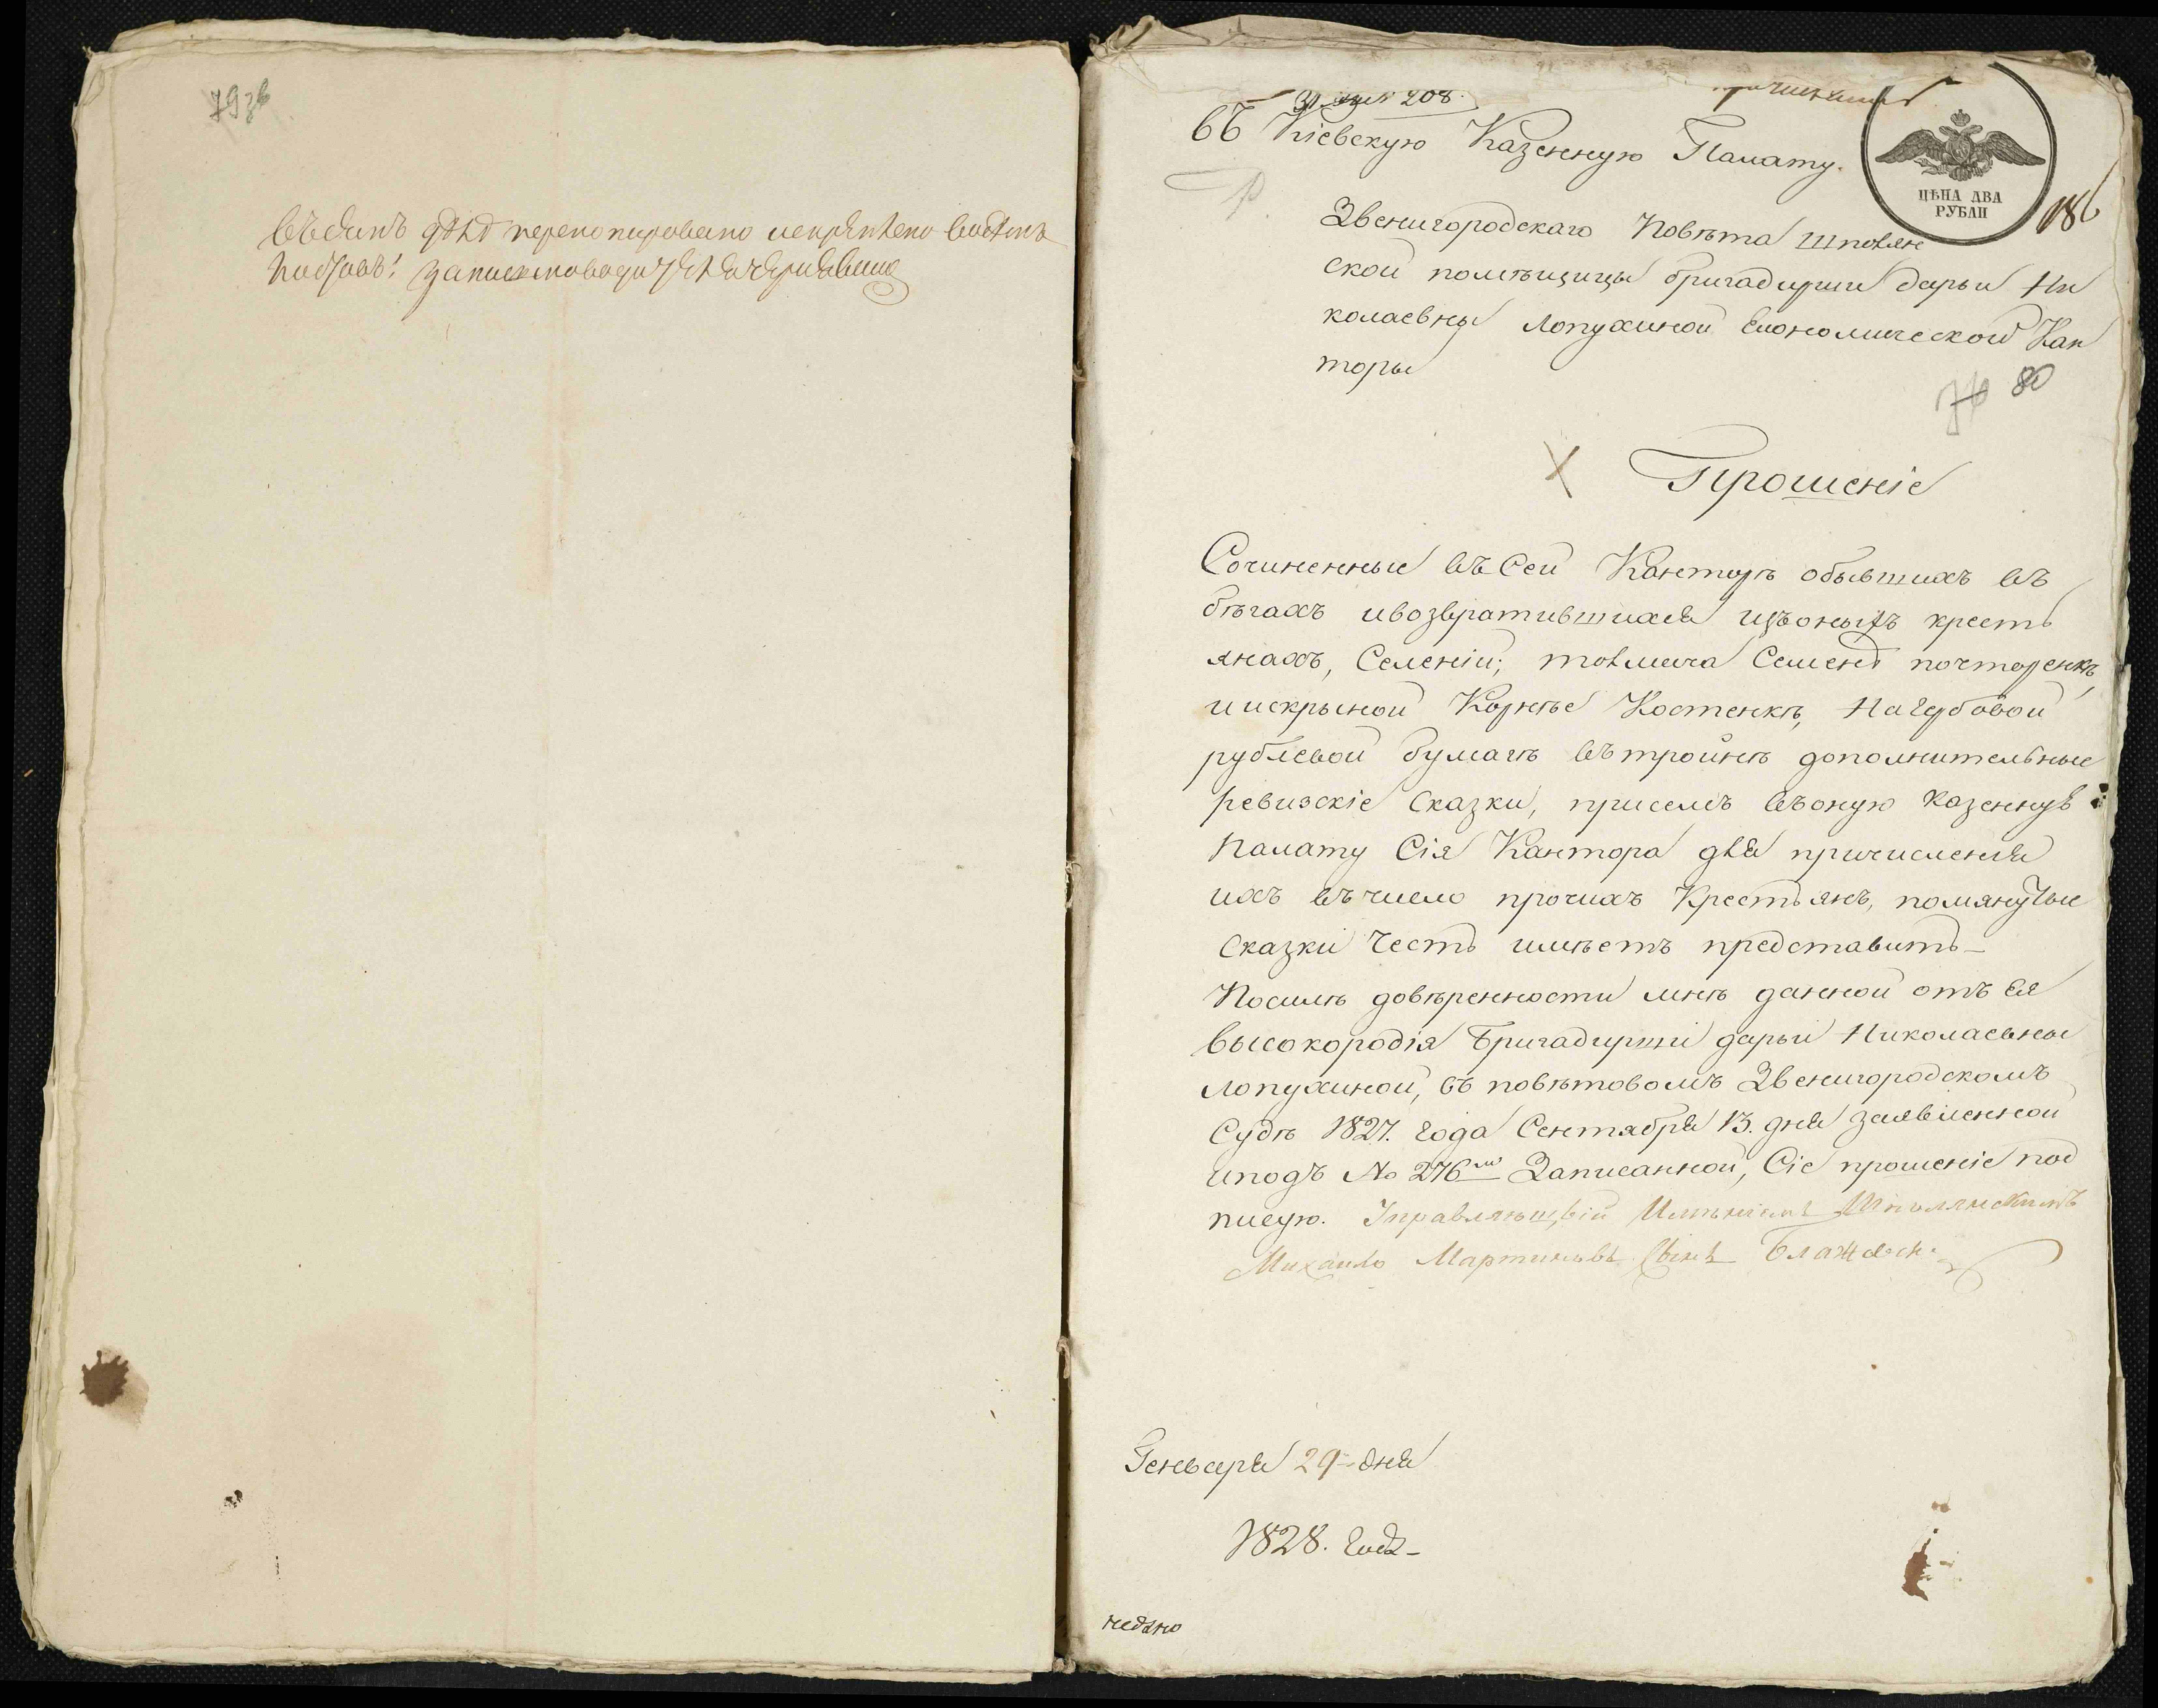 79 зв
въ семъ дѣлѣ перенумеровано и скрѣплено
въ Кіевскую Казенную Палату.
208.
ЦѢНА ДВА
РУБЛИ
186
Звенигородскаго Повѣта шполян
ской помѣщицы бригадирши дарьи Ни
колаевны Лопухиной Економической Кан
торы
80
Прошеніе
Сочиненные въ Сей Канторѣ обывшихъ въ
бѣгахъ ивозвратившихся изъоныхъ кресть
янахъ, Селеніи; толмача Семенѣ почторенкѣ,
иискрыной Корнѣе Костенкѣ, На гербовой
рублевой бумагѣ въ тройнѣ дополнительные
ревизскіе Сказки, присемъ въоную Казенную
Палату Сія Кантора для причисленія
ихъ въ число прочихъ Крестьянъ, помянутые
Сказки Честь имѣетъ представить
Посилѣ довѣренности мнѣ данной отъ Ея
высокородія Бригадирши дарьи Николаевны
Лопухиной, въ повѣтовомъ Звенигородскомъ
Судѣ 1827. года Сентября 13. дня заявленной
иподъ № 276 Записанной, Сіе прошеніе под
писую. Управляющій Имѣніемъ Шполянскимъ
Михайло Мартиновъ Сынъ
Генваря 29 дня
1828. года